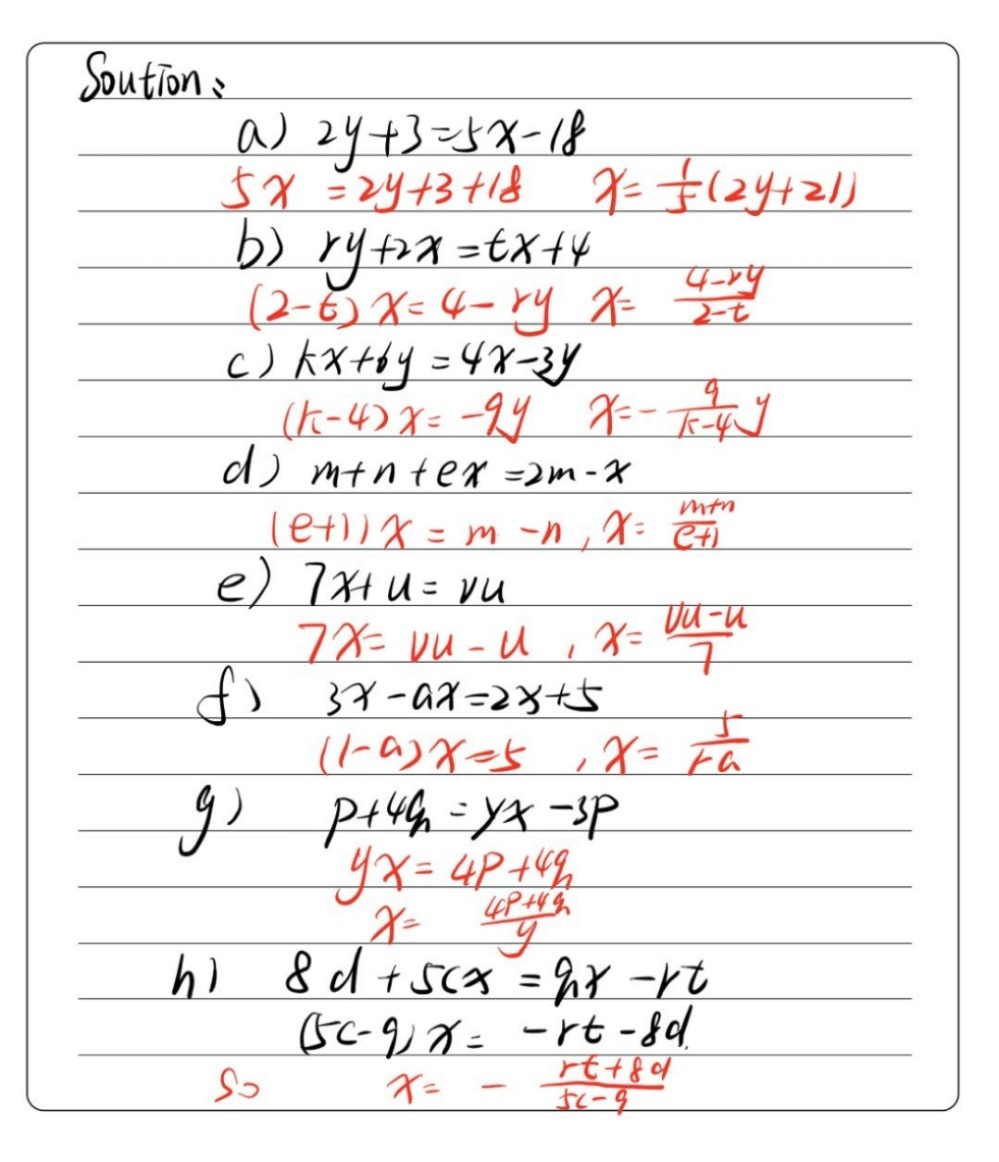 Soution:
a) 2y+3=5x-18
5x =2y+3+18 x= 1/5(2y+21)
b) ry+2x=tx+4
(2-t)x=4-ry x= (4-ry)/(2-t)
c) kx+6y=4x-3y
(k-4)x=-9y x=- 9/(k-4) y
d) m+n+ex=2m-x
(e+1)x = m -n, x= (m+n)/(e+1)
e) 7x+u=vu
7x= vu-u, x= (vu-u)/7
f) 3x-ax=2x+5
(1-a)x=5, x= 5/(1-a)
g) p+4q=yx-3p
yx=4p+4q
x= (4p+4q)/y
h) 8d+5cx=qx-rt
(5c-q)x= -rt-8d.
So x= - (rt+8d)/(5c-q)